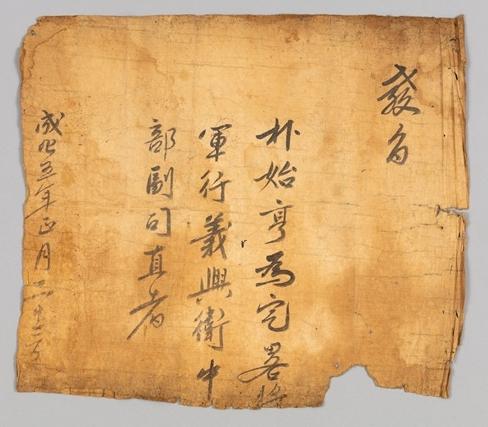 教旨
朴始亨爲定畧將
軍行義興衛中
部副司直者
成化五年正月二十二日